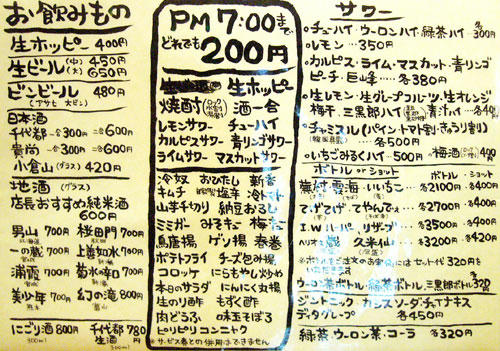 お飲みもの
生ホッピー 400円
生ビール (中) 450円
(大) 650円
ビンビール 480円
(アサヒ 大ビン)
日本酒
千代都 一合300円 二合600円
貴尚 一合300円 二合600円
小倉山 (グラス) 420円
地酒 (グラス)
店長おすすめ純米酒
600円
男山 700円 桜田門 700円
一の蔵 700円 上善如水 700円
浦霞 700円 菊水辛口 700円
美少年 700円 幻の瀧 800円
にごり酒 800円 千代都 780円
300ml 生酒 300ml
PM 7:00まで
どれでも
200円
生ホッピー
焼酎 酒一合
レモンサワー チューハイ
カルピスサワー 青リンゴサワー
ライムサワー マスカットサワー
冷奴 おひたし 新香
キムチ 塩辛 冷トマト
山芋千切り 納豆おろし
ミミガー みそキュー 梅きゅー
鳥唐揚 ゲソ揚 春巻
ポテトフライ チーズ包み揚
コロッケ にらもやし炒め
本日のサラダ にんにく丸揚
生のり酢 もずく酢
肉どうふ 味玉そぼろ
ピリピリコンニャク
※サービス券との併用はできません
サワー
○チューハイ・ウーロンハイ・緑茶ハイ 各300円
○レモン…350円
○カルピス・ライム・マスカット・青リンゴ
ピーチ・巨峰…各380円
○生レモン・生グレープフルーツ・生オレンジ
梅干・三黒郎ハイ 青汁ハイ…各400円
○チャミスル(パイン・トマト割・きゅうり割り)
(韓国焼酎) …各500円
○いちごみるくハイ…500円 ○梅酒
ボトル or ショット ボトル ショット
蕪村・雲海・いいちこ…各2100 各400円
てげてげ・てやんでぇ…各2700 各400円
I.W.ハーパー・リザーブ…各3500 各400円
久米仙…各3200 各420円
※ボトルをご注文のお客様にはセット代320円を
いただきます
ウーロン茶ボトル・緑茶ボトル・三黒郎ボトル320円
ジントニック カシスソーダ・チャイナキス
ディタグレープ 各450円
緑茶・ウーロン茶・コーラ 320円